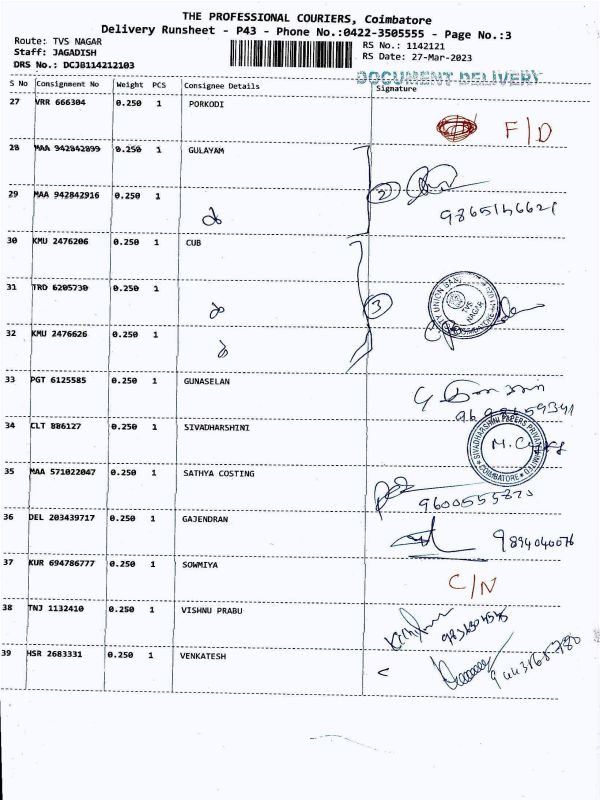 THE PROFESSIONAL COURIERS, Coimbatore
Delivery Runsheet - P43 - Phone No.:0422-3505555 - Page No.:3
Route: TVS NAGAR
Staff: JAGADISH
DRS No.: DCJB114212103
RS No.: 1142121
RS Date: 27-Mar-2023
DOCUMENT DELIVERY
S No Consignment No Weight PCS Consignee Details Signature
27 VRR 666304 0.250 1 PORKODI F/D
28 MAA 942842899 0.250 1 GULAYAM
29 MAA 942842916 0.250 1
2
30 KMU 2476206 0.250 1 CUB
31 TRD 6205730 0.250 1
3
TVS NAGAR
32 KMU 2476626 0.250 1
33 PGT 6125585 0.250 1 GUNASELAN
34 CLT 886127 0.250 1 SIVADHARSHINI
SIVADHARSHINI PAPERS PRIVATE LIMITED
COIMBATORE
35 MAA 571022047 0.250 1 SATHYA COSTING
9600555820
36 DEL 203439717 0.250 1 GAJENDRAN
9894040076
37 KUR 694786777 0.250 1 SOWMIYA C/N
38 TNJ 1132410 0.250 1 VISHNU PRABU
39 HSR 2683331 0.250 1 VENKATESH